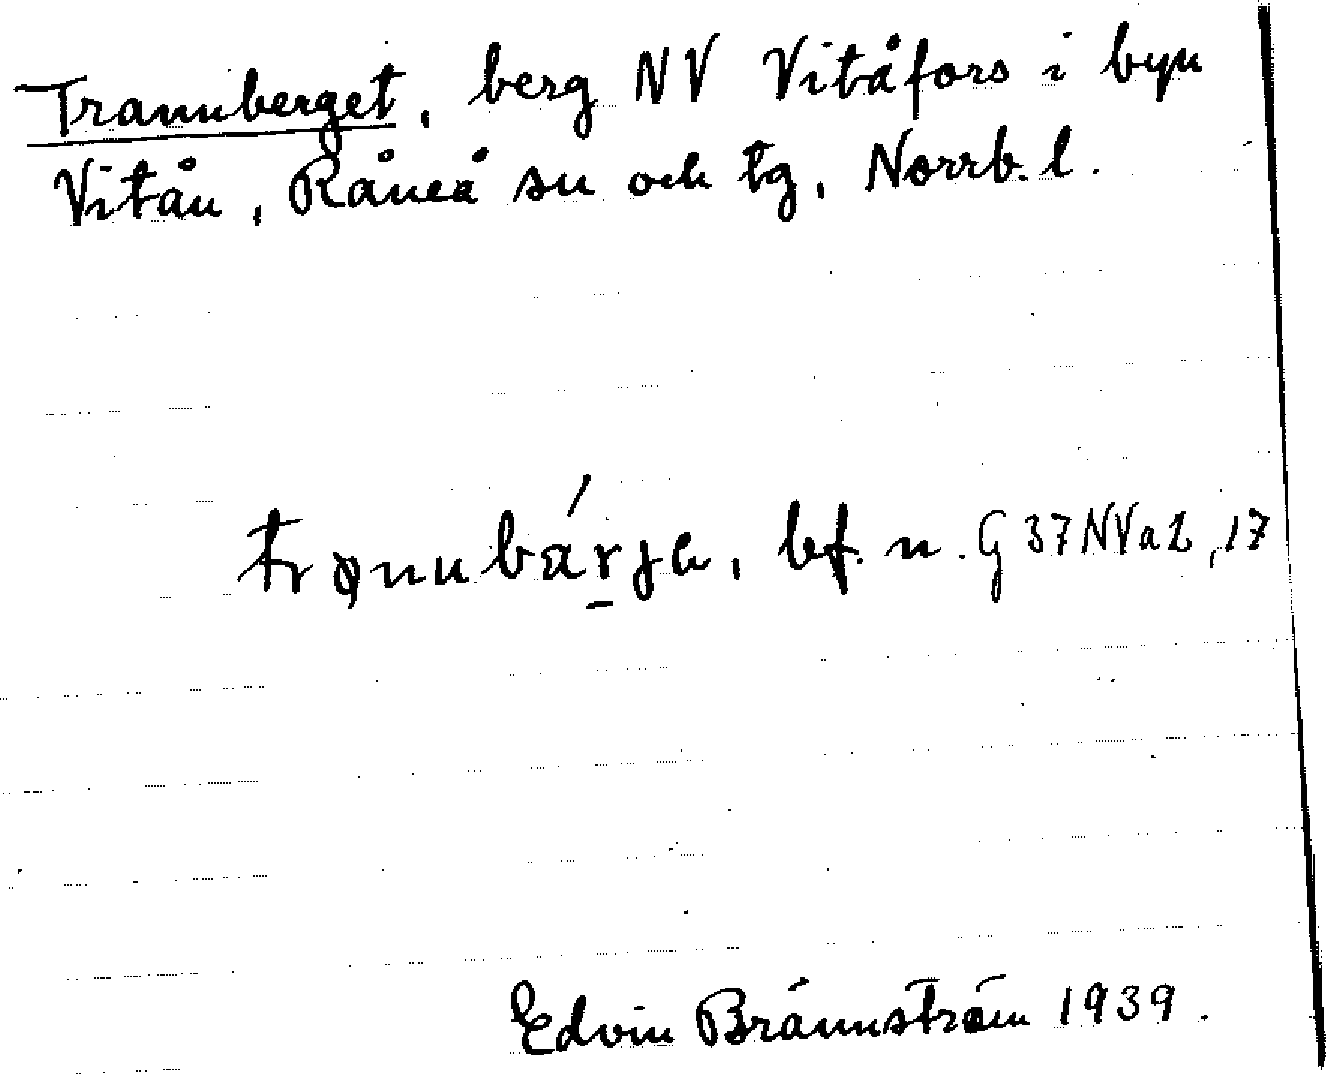 Trannberget, berg NV Vitåfors i byn
Vitån, Råneå sn och tg, Norrb. l.
bf. n. G 37 NV a 2, 17
Edvin Brännström 1939.